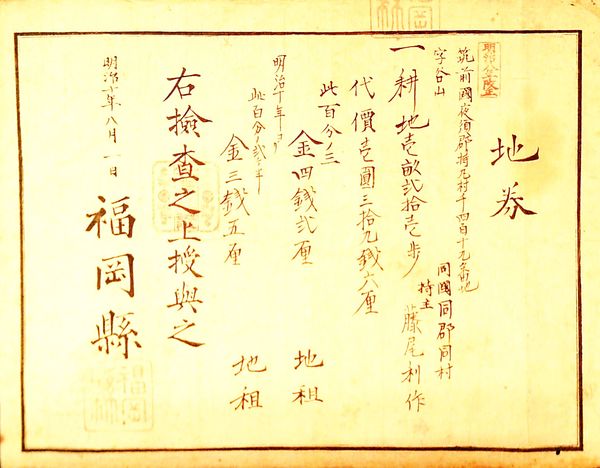 地券
筑前國夜須郡持丸村千四百十九番地
字谷山
同國同郡同村
一耕地壱畝弐拾壱歩
持主
藤尾利作
代價壱圓三拾九錢六厘
此百分ノ三
金四錢弐厘 地租
明治十年ヨリ
此百分ノ弐ヶ半
金三錢五厘 地租
右撿査之上授與之
明治十年八月一日
福岡縣